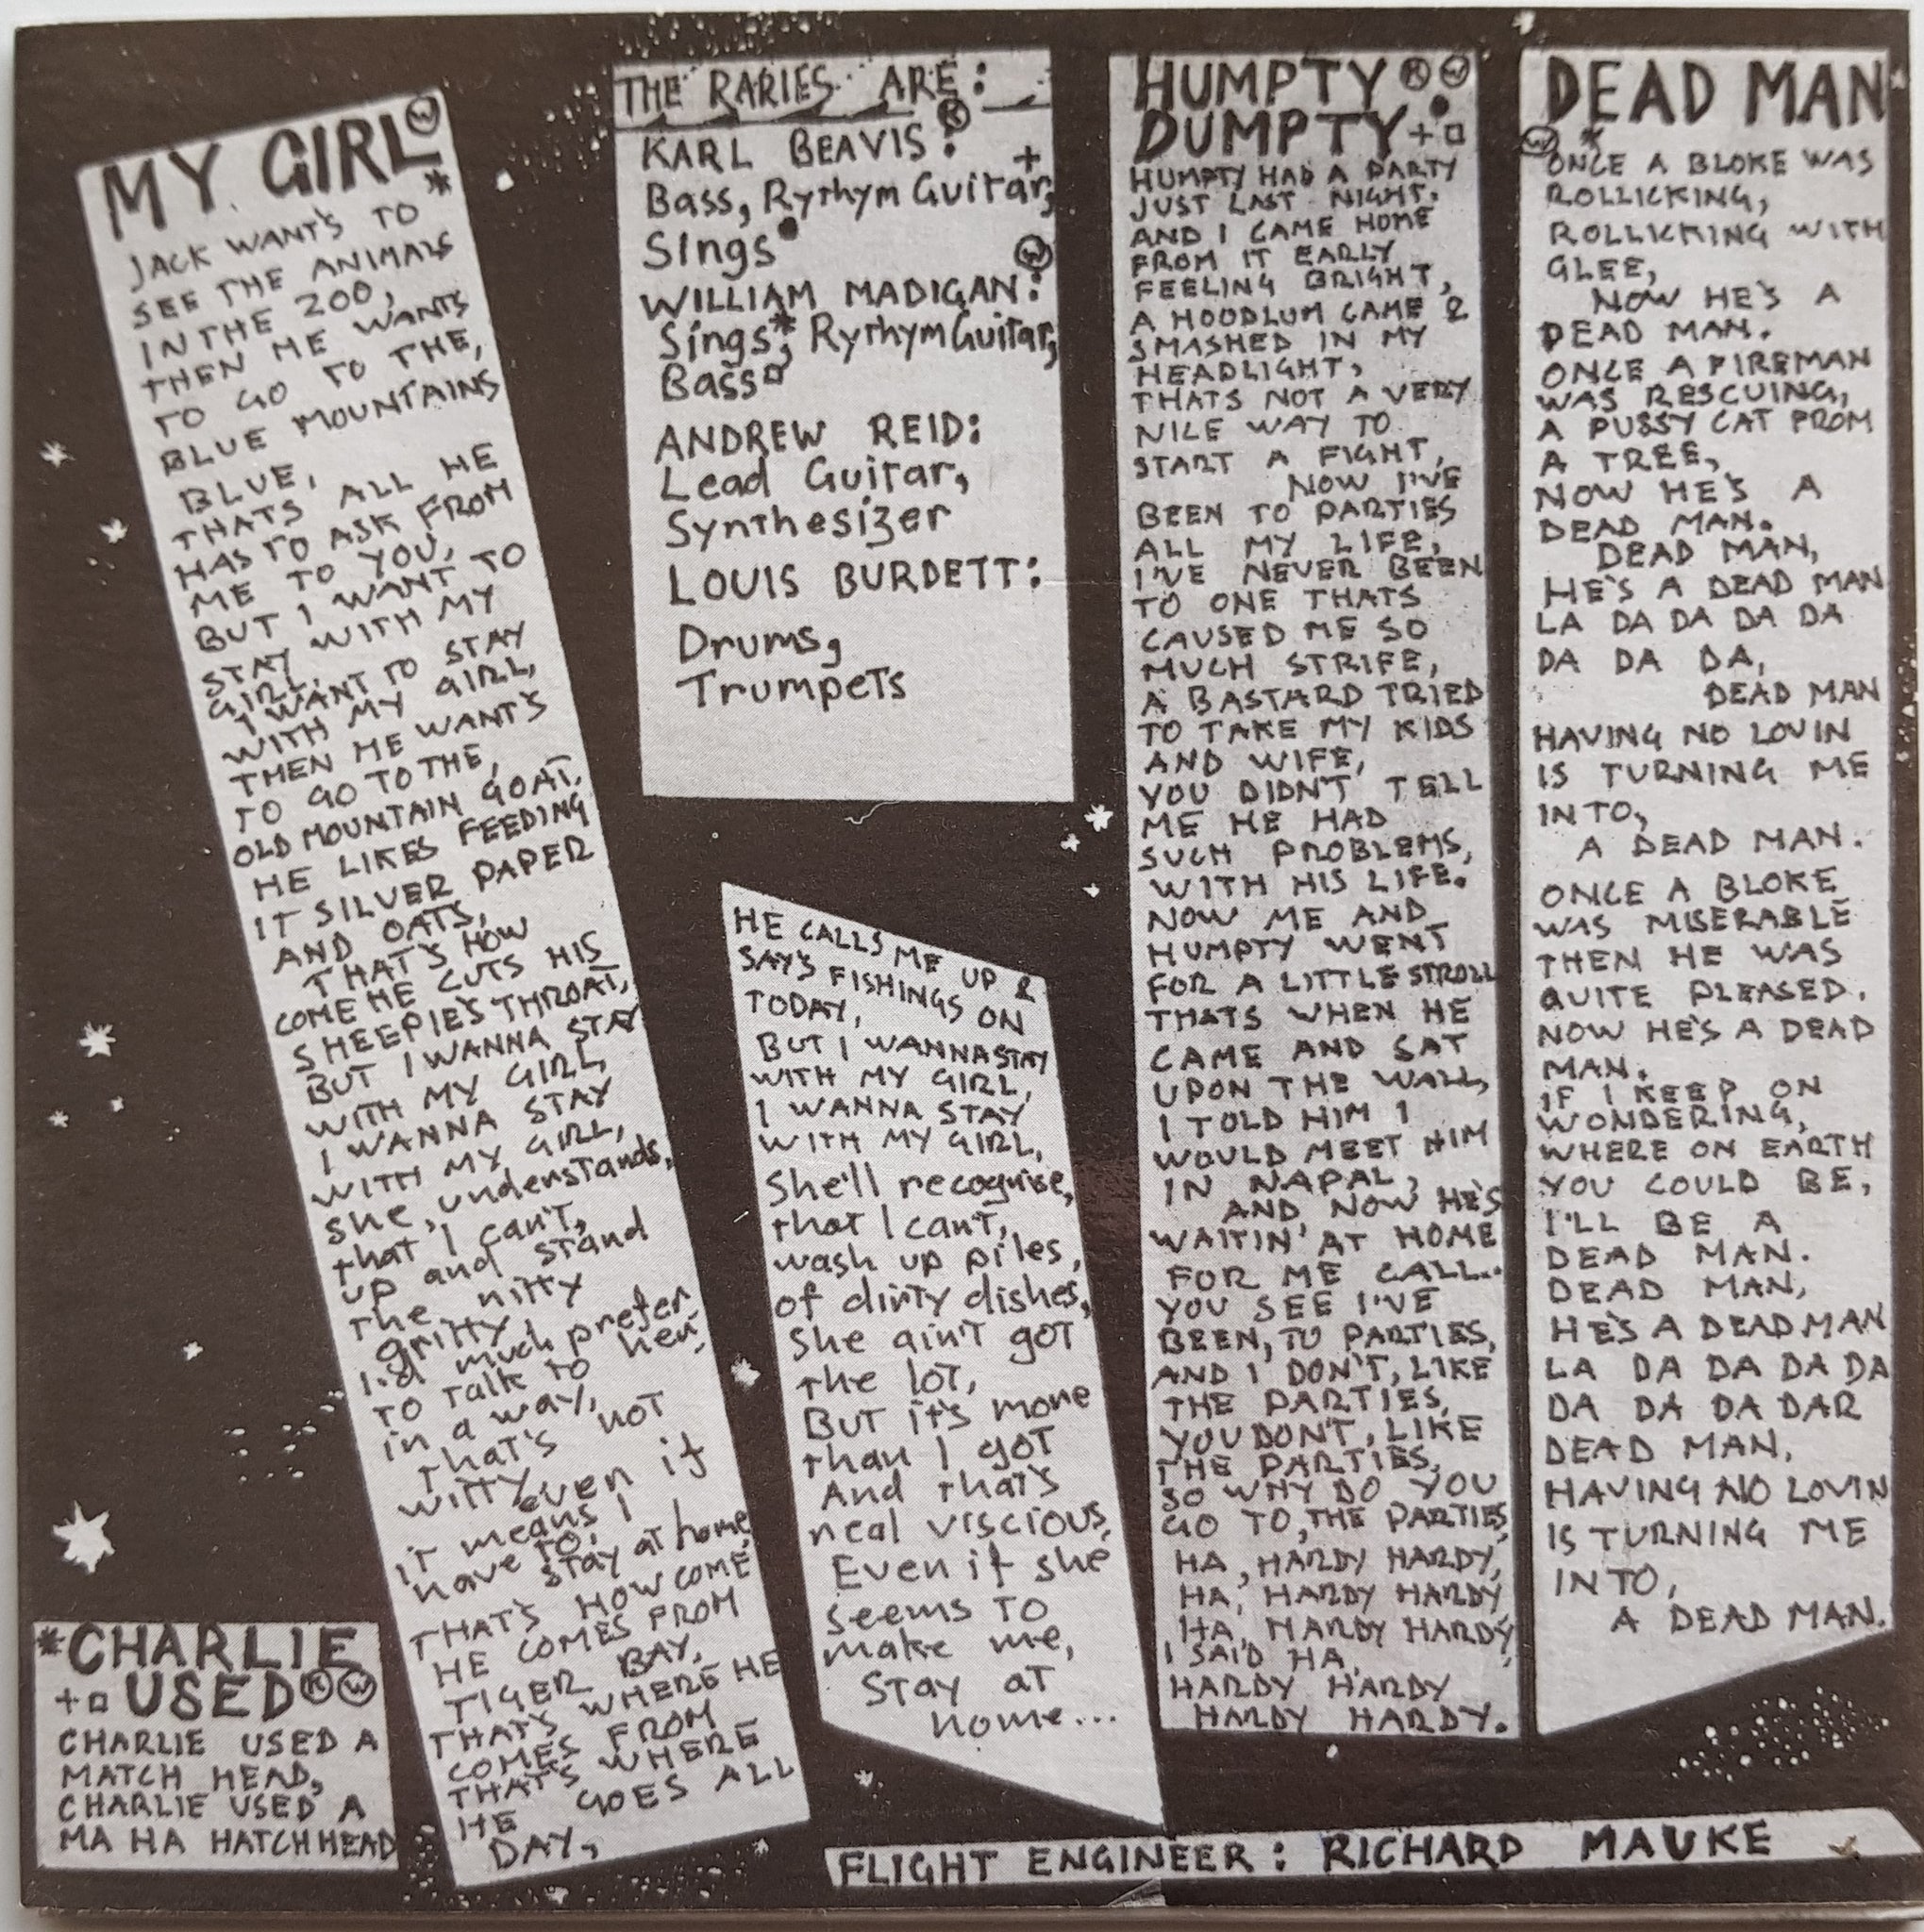 MY GIRL Ⓦ
*
JACK WANT'S TO
SEE THE ANIMALS
IN THE ZOO,
THEN HE WANTS
TO GO TO THE,
BLUE MOUNTAINS
BLUE,
THATS ALL HE
HAS TO ASK FROM
ME TO YOU,
BUT I WANT TO
STAY WITH MY
GIRL,
I WANT TO STAY
WITH MY GIRL,
THEN HE WANT'S
TO GO TO THE,
OLD MOUNTAIN GOAT,
HE LIKES FEEDING
IT SILVER PAPER
AND OATS,
THAT'S HOW
COME HE CUTS HIS
SHEEPIE'S THROAT,
BUT I WANNA STAY
WITH MY GIRL,
I WANNA STAY
WITH MY GIRL,
she, understands,
that I can't,
up and stand
the nitty
gritty,
I'd much prefer
to talk to her,
in a way,
that's not
witty,
even if
it means I
have to,
stay at home,
THAT'S HOW COME
HE COMES FROM
TIGER BAY,
THAT'S WHERE HE
COMES FROM
THAT'S WHERE
HE GOES ALL
DAY,
HE CALLS ME UP &
SAY'S FISHINGS ON
TODAY,
BUT I WANNA STAY
WITH MY GIRL,
I WANNA STAY
WITH MY GIRL,
She'll recognise,
that I can't,
wash up piles,
of dirty dishes,
She ain't got
the lot,
But it's more
than I got
And that's
real viscious,
Even if she
seems to
make me,
stay at
home...
THE RARIES ARE:
KARL BEAVIS: Ⓚ
Bass, Rythym Guitar, +
Sings ●
WILLIAM MADIGAN: Ⓦ
Sings*, Rythym Guitar,
Bass □
ANDREW REID:
Lead Guitar,
Synthesizer
LOUIS BURDETT:
Drums,
Trumpets
HUMPTY Ⓚ Ⓦ
DUMPTY ● + □
HUMPTY HAD A PARTY
JUST LAST NIGHT.
AND I CAME HOME
FROM IT EARLY
FEELING BRIGHT,
A HOODLUM CAME &
SMASHED IN MY
HEADLIGHT,
THATS NOT A VERY
NICE WAY TO
START A FIGHT,
NOW I'VE
BEEN TO PARTIES
ALL MY LIFE,
I'VE NEVER BEEN
TO ONE THATS
CAUSED ME SO
MUCH STRIFE,
A BASTARD TRIED
TO TAKE MY KIDS
AND WIFE,
YOU DIDN'T TELL
ME HE HAD
SUCH PROBLEMS,
WITH HIS LIFE.
NOW ME AND
HUMPTY WENT
FOR A LITTLE STROLL
THATS WHEN HE
CAME AND SAT
UPON THE WALL,
I TOLD HIM I
WOULD MEET HIM
IN NAPAL,
AND NOW HE'S
WAITIN' AT HOME
FOR ME CALL..
YOU SEE I'VE
BEEN, TO PARTIES,
AND I DON'T, LIKE
THE PARTIES,
YOU DON'T, LIKE
THE PARTIES,
SO WHY DO YOU
GO TO, THE PARTIES,
HA, HARDY HARDY,
HA, HARDY HARDY
HA, HARDY HARDY,
I SAID HA,
HARDY HARDY
HARDY HARDY.
DEAD MAN
Ⓦ *
ONCE A BLOKE WAS
ROLLICKING,
ROLLICKING WITH
GLEE,
NOW HE'S A
DEAD MAN.
ONCE A FIREMAN
WAS RESCUING,
A PUSSY CAT FROM
A TREE,
NOW HE'S A
DEAD MAN.
DEAD MAN,
HE'S A DEAD MAN
LA DA DA DA DA
DA DA DA,
DEAD MAN
HAVING NO LOVIN
IS TURNING ME
INTO,
A DEAD MAN.
ONCE A BLOKE
WAS MISERABLE
THEN HE WAS
QUITE PLEASED.
NOW HE'S A DEAD
MAN.
IF I KEEP ON
WONDERING,
WHERE ON EARTH
YOU COULD BE,
I'LL BE A
DEAD MAN.
DEAD MAN,
HE'S A DEAD MAN
LA DA DA DA DA
DA DA DA DAR
DEAD MAN,
HAVING NO LOVIN
IS TURNING ME
INTO,
A DEAD MAN.
*CHARLIE
+ □ USED Ⓚ Ⓦ
CHARLIE USED A
MATCH HEAD,
CHARLIE USED A
MA HA HATCHHEAD
FLIGHT ENGINEER: RICHARD MAUKE